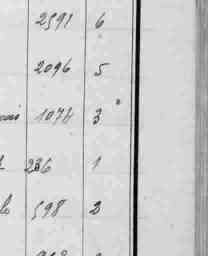 2591 6
2096 5
1074 3
236 1
598 2